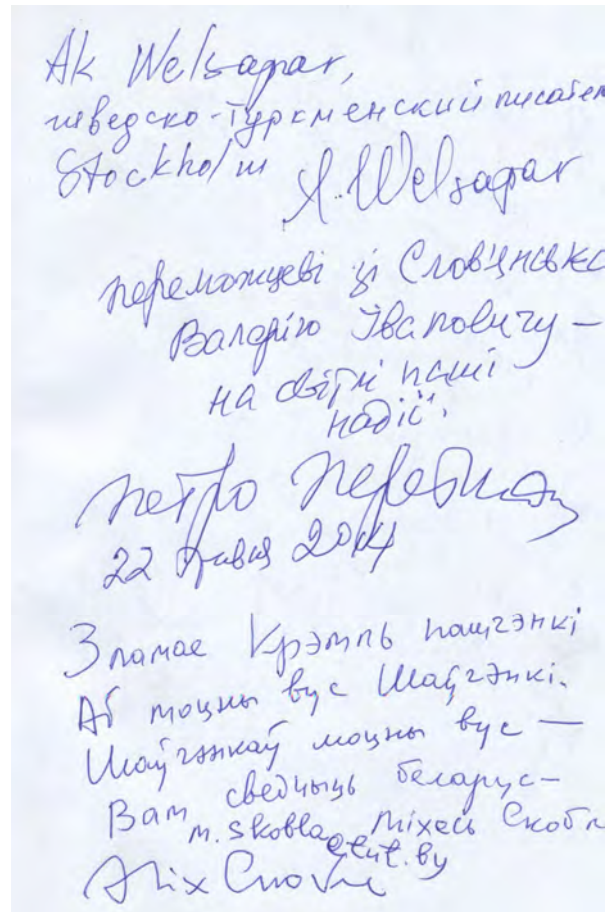 Ak Welsapar,
шведско-туркменский писател
Stockholm A. Welsapar
переможцеві зі Слов'янсько
Валерію Івановичу —
на світлі наші
надії.
Петро
22 травня 2014
Зламае Крэмль пашчэнкі
Аб моцны вус Шаўчэнкі.
Шаўчэнкаў моцны вус —
Вам сведчыць беларус —
m.skobla@tut.by Міхась Скобл